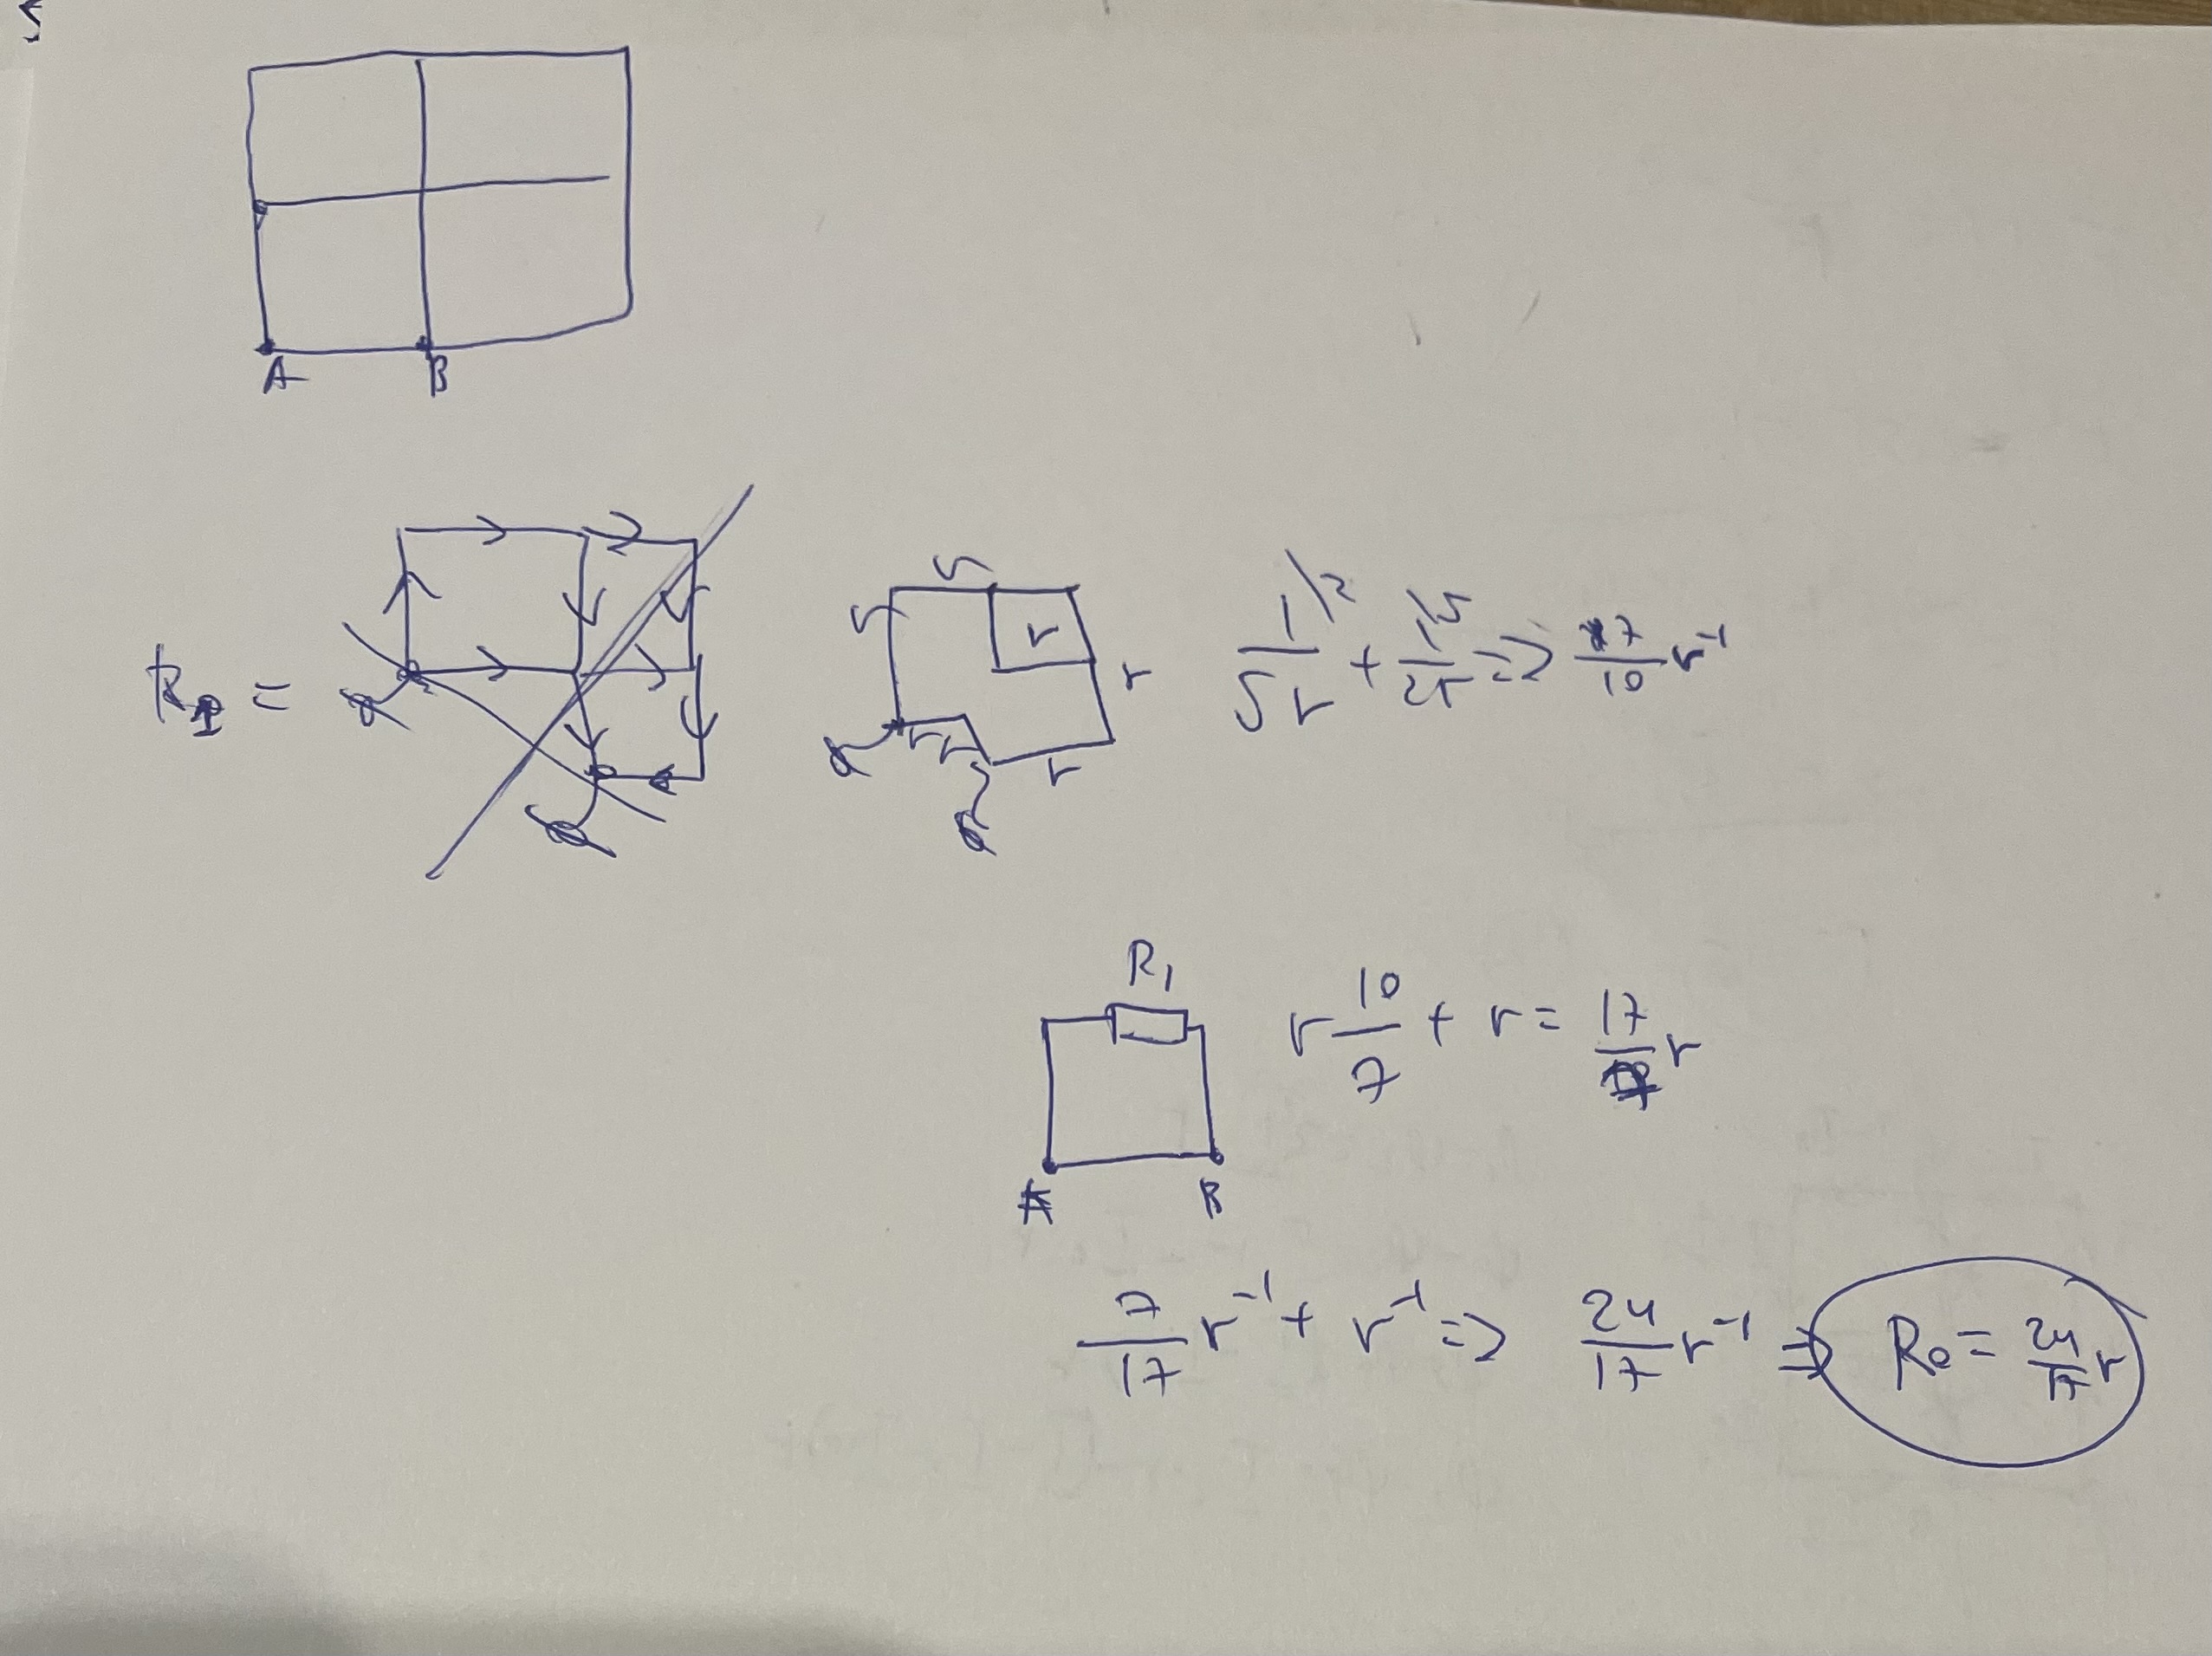 A B
R₁ =
r
r r r
r r r
1/5r \2 + 1/2r \5 => 7/10 r⁻¹
R₁
r 10/7 + r = 17/7 r
A B
7/17 r⁻¹ + r⁻¹ => 24/17 r⁻¹ => R₀ = 24/17 r